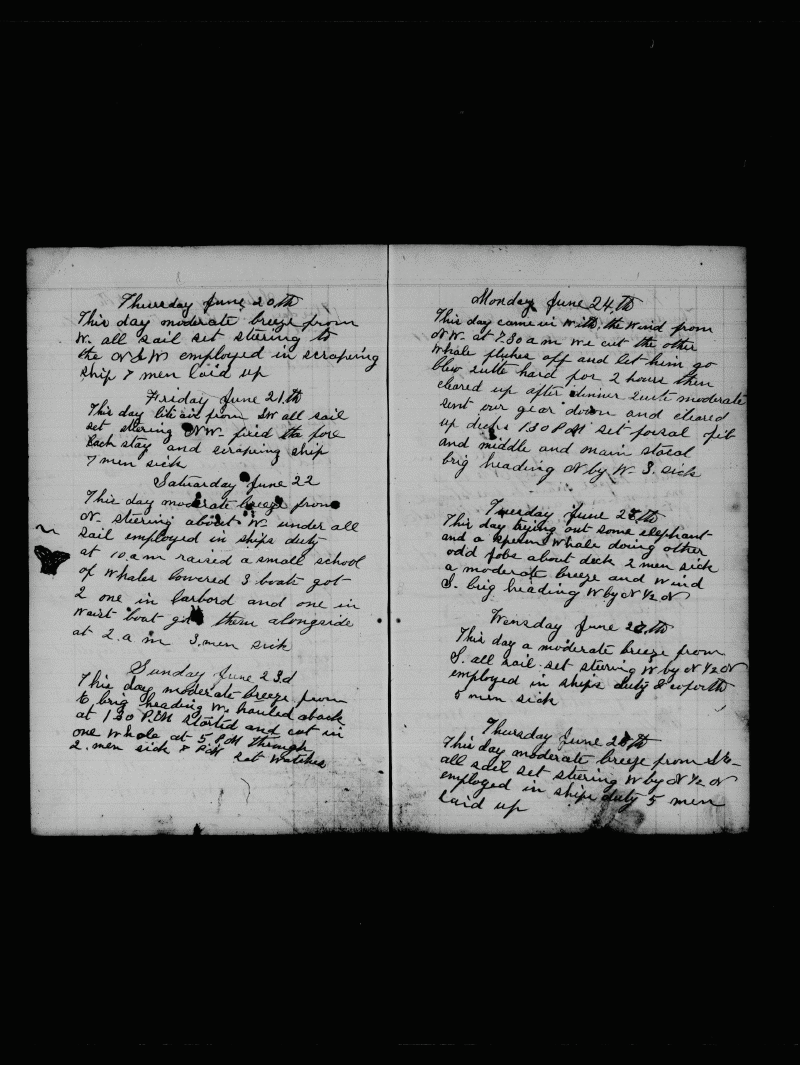 Thursday June 20th
This day moderate breeze from
W. all sail set stering to
the N & W employed in scraping
ship 7 men laid up
Friday June 21.th
This day lite air from SW all sail
set stering NW. fixed the fore
back stay and scraping ship
7 men sick
Saturday June 22
This day moderate breeze from
N. steering about W. under all
sail employed in ships duty
at 10. a m raised a small school
of whales lowered 3 boats got
2 one in larbord and one in
waist boat got them alongside
at 2. a m 3 men sick
Sunday June 23d
This day moderate breeze from
E brig heading W. hauled aback
at 1 30 P.M started and cut in
one whale at 5 P M through
2. men sick 8 P.M set watches
Monday June 24.th
This day came in with the wind from
NW. at 7.30 a m we cut the other
whale flukes off and let him go
blew quite hard for 2 hours then
cleared up after dinner quite moderate
sent our gear down and cleared
up decks 1.30 P M set forsal jib
and middle and main stasal
brig heading N by W- 3. sick
Tuesday June 25.th
This day trying out some elephant
and a sperm whale doing other
odd jobs about deck 2 men sick
a moderate breeze and wind
S. brig heading W by N 1/2 N
Wensday June th
This day a moderate breeze from
S. all sail set steering W by N 1/2 N
employed in ships duty & so forth
5 men sick
Thursday June th
This day moderate breeze from
all sail set steering W by N 1/2 N
employed in ships duty 5 men
laid up